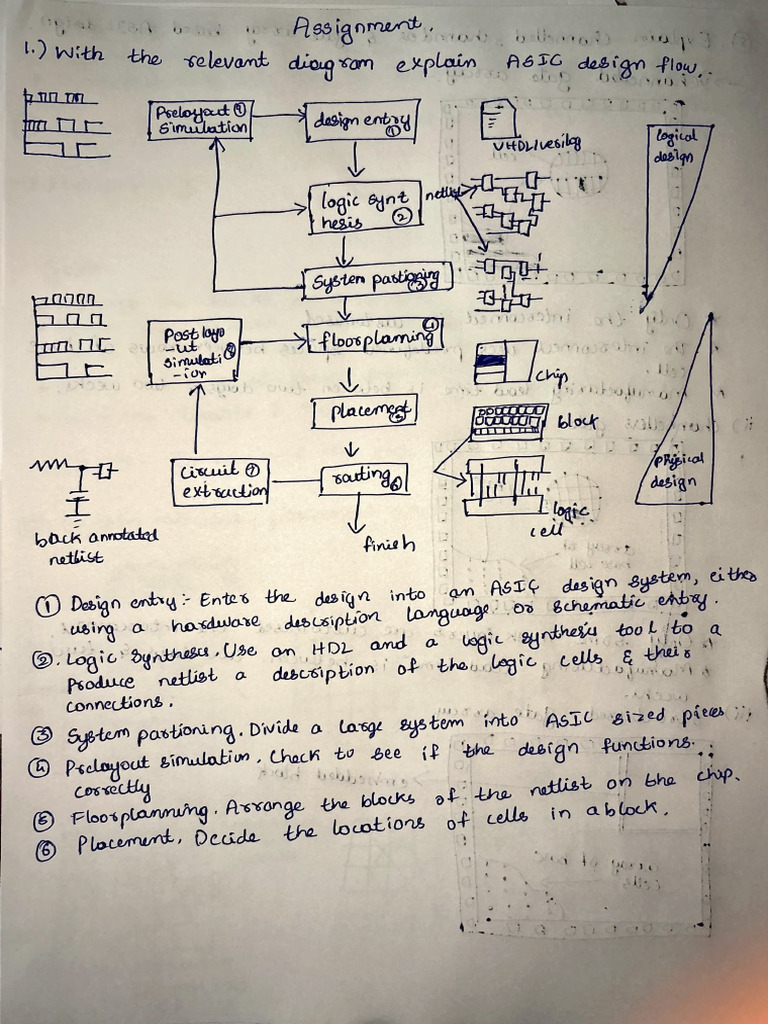 Assignment.
1.) With the relevant diagram explain ASIC design flow.
Prelayout 4
simulation
design entry
1
VHDL/verilog
logical
design
logic synt
hesis 2
netlist
System partioning
3
Post layo
-ut
simulati 9
-ion
floorplanning
4
chip
placement 5
block
circuit 7
extraction
routing 6
physical
design
logic
cell
back annotated
netlist
finish
① Design entry :- Enter the design into an ASIC design system, either
using a hardware description language or schematic entry.
②. Logic synthesis. Use an HDL and a logic synthesis tool to a
produce netlist a description of the logic cells & their
connections.
③ System partioning. Divide a large system into ASIC sized pieces
④ Prelayout simulation. Check to see if the design functions.
correctly
⑤ Floorplanning. Arrange the blocks of the netlist on the chip.
⑥ Placement. Decide the locations of cells in a block.